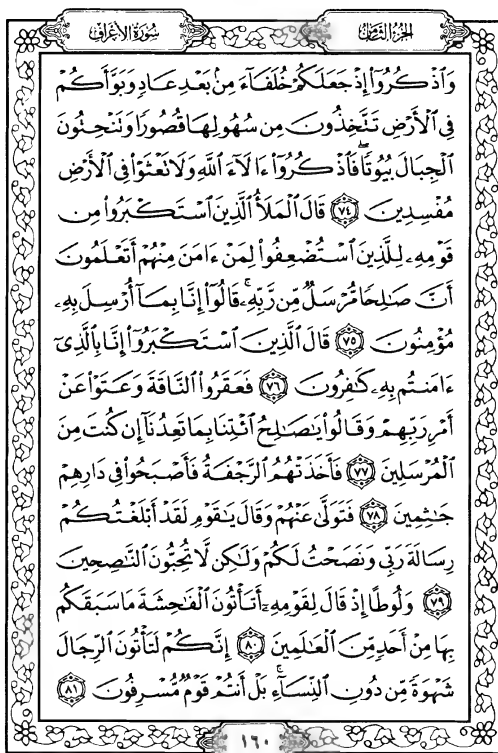 سُورَةُ الأَعْرَافِ
الجُزْءُ الثَّامِنُ
وَاذْكُرُوٓا۟ إِذْ جَعَلَكُمْ خُلَفَآءَ مِنۢ بَعْدِ عَادٍ وَبَوَّأَكُمْ
فِى الْأَرْضِ تَتَّخِذُونَ مِن سُهُولِهَا قُصُورًا وَتَنْحِتُونَ
الْجِبَالَ بُيُوتًا ۖ فَاذْكُرُوٓا۟ ءَالَآءَ اللَّهِ وَلَا تَعْثَوْا۟ فِى الْأَرْضِ
مُفْسِدِينَ ﴿٧٤﴾ قَالَ الْمَلَأُ الَّذِينَ اسْتَكْبَرُوا۟ مِن
قَوْمِهِۦ لِلَّذِينَ اسْتُضْعِفُوا۟ لِمَنْ ءَامَنَ مِنْهُمْ أَتَعْلَمُونَ
أَنَّ صَٰلِحًا مُّرْسَلٌ مِّن رَّبِّهِۦ ۚ قَالُوٓا۟ إِنَّا بِمَآ أُرْسِلَ بِهِۦ
مُؤْمِنُونَ ﴿٧٥﴾ قَالَ الَّذِينَ اسْتَكْبَرُوٓا۟ إِنَّا بِالَّذِىٓ
ءَامَنتُم بِهِۦ كَٰفِرُونَ ﴿٧٦﴾ فَعَقَرُوا۟ النَّاقَةَ وَعَتَوْا۟ عَنْ
أَمْرِ رَبِّهِمْ وَقَالُوا۟ يَٰصَٰلِحُ ائْتِنَا بِمَا تَعِدُنَآ إِن كُنتَ مِنَ
الْمُرْسَلِينَ ﴿٧٧﴾ فَأَخَذَتْهُمُ الرَّجْفَةُ فَأَصْبَحُوا۟ فِى دَارِهِمْ
جَٰثِمِينَ ﴿٧٨﴾ فَتَوَلَّىٰ عَنْهُمْ وَقَالَ يَٰقَوْمِ لَقَدْ أَبْلَغْتُكُمْ
رِسَالَةَ رَبِّى وَنَصَحْتُ لَكُمْ وَلَٰكِن لَّا تُحِبُّونَ النَّٰصِحِينَ
﴿٧٩﴾ وَلُوطًا إِذْ قَالَ لِقَوْمِهِۦٓ أَتَأْتُونَ الْفَٰحِشَةَ مَا سَبَقَكُم
بِهَا مِنْ أَحَدٍ مِّنَ الْعَٰلَمِينَ ﴿٨٠﴾ إِنَّكُمْ لَتَأْتُونَ الرِّجَالَ
شَهْوَةً مِّن دُونِ النِّسَآءِ ۚ بَلْ أَنتُمْ قَوْمٌ مُّسْرِفُونَ ﴿٨١﴾
١٦٠